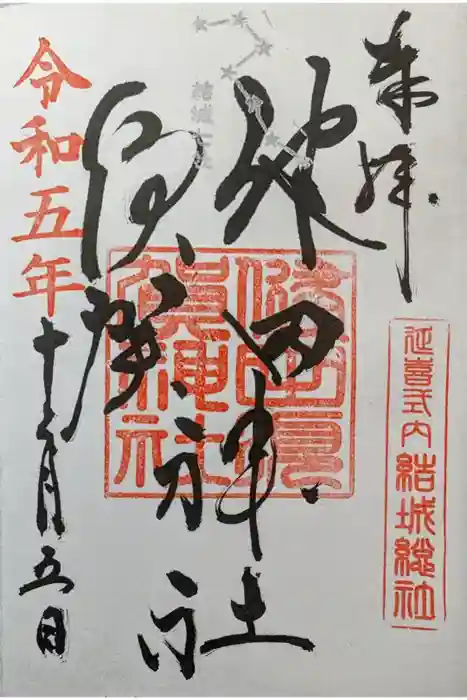 奉拝
延喜式内結城總社
健田神社
須賀神社
結城七社
令和五年十一月五日